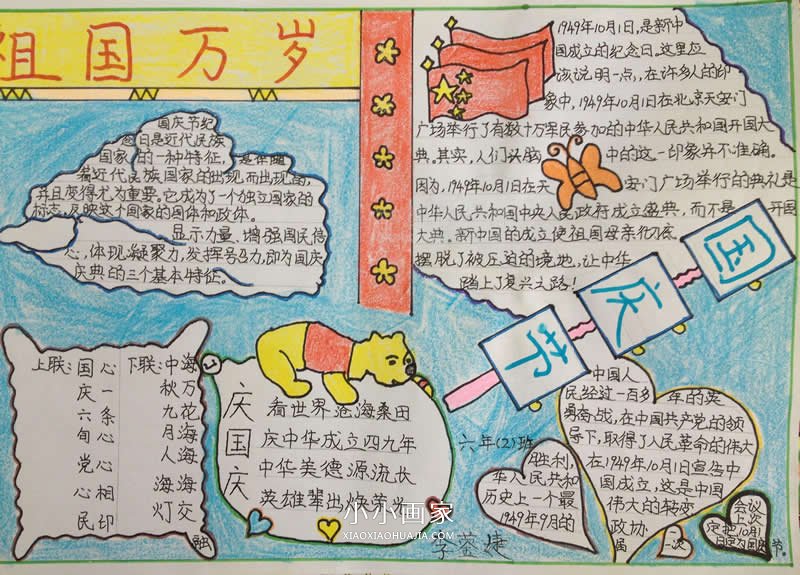 祖国万岁
国庆节纪
念日是近代民族
国家的一种特征,是伴随
着近代民族国家的出现而出现的,
并且变得尤为重要。它成为了一个独立国家的
标志,反映这个国家的国体和政体。
显示力量、增强国民信
心,体现凝聚力,发挥号召力,即为国庆
庆典的三个基本特征。
1949年10月1日,是新中
国成立的纪念日。这里应
该说明一点,在许多人的印
象中,1949年10月1日在北京天安门
广场举行了有数十万军民参加的中华人民共和国开国大
典。其实,人们头脑中的这一印象并不准确。
因为,1949年10月1日在天安门广场举行的典礼是
中华人民共和国中央人民政府成立盛典,而不是开国
大典。新中国的成立使祖国母亲彻底
摆脱了被压迫的境地,让中华
踏上了复兴之路!
国庆节
上联:国庆六旬党心民心一条心心相印
下联:中秋九月人海灯海万花海海交融
庆国庆
看世界沧海桑田
庆中华成立四九年
中华美德源流长
英雄辈出焕荣光
六年(2)班
中国人
民经过一百多年的英
勇奋战,在中国共产党的领
导下,取得了人民革命的伟大
胜利,在1949年10月1日宣告中
华人民共和国成立,这是中国
历史上一个最伟大的转变
1949年9月的政协
一届一次
会议
上次
定把10月1
日定为国庆节。
小小画家
XIAOXIAOHUAJIA.COM